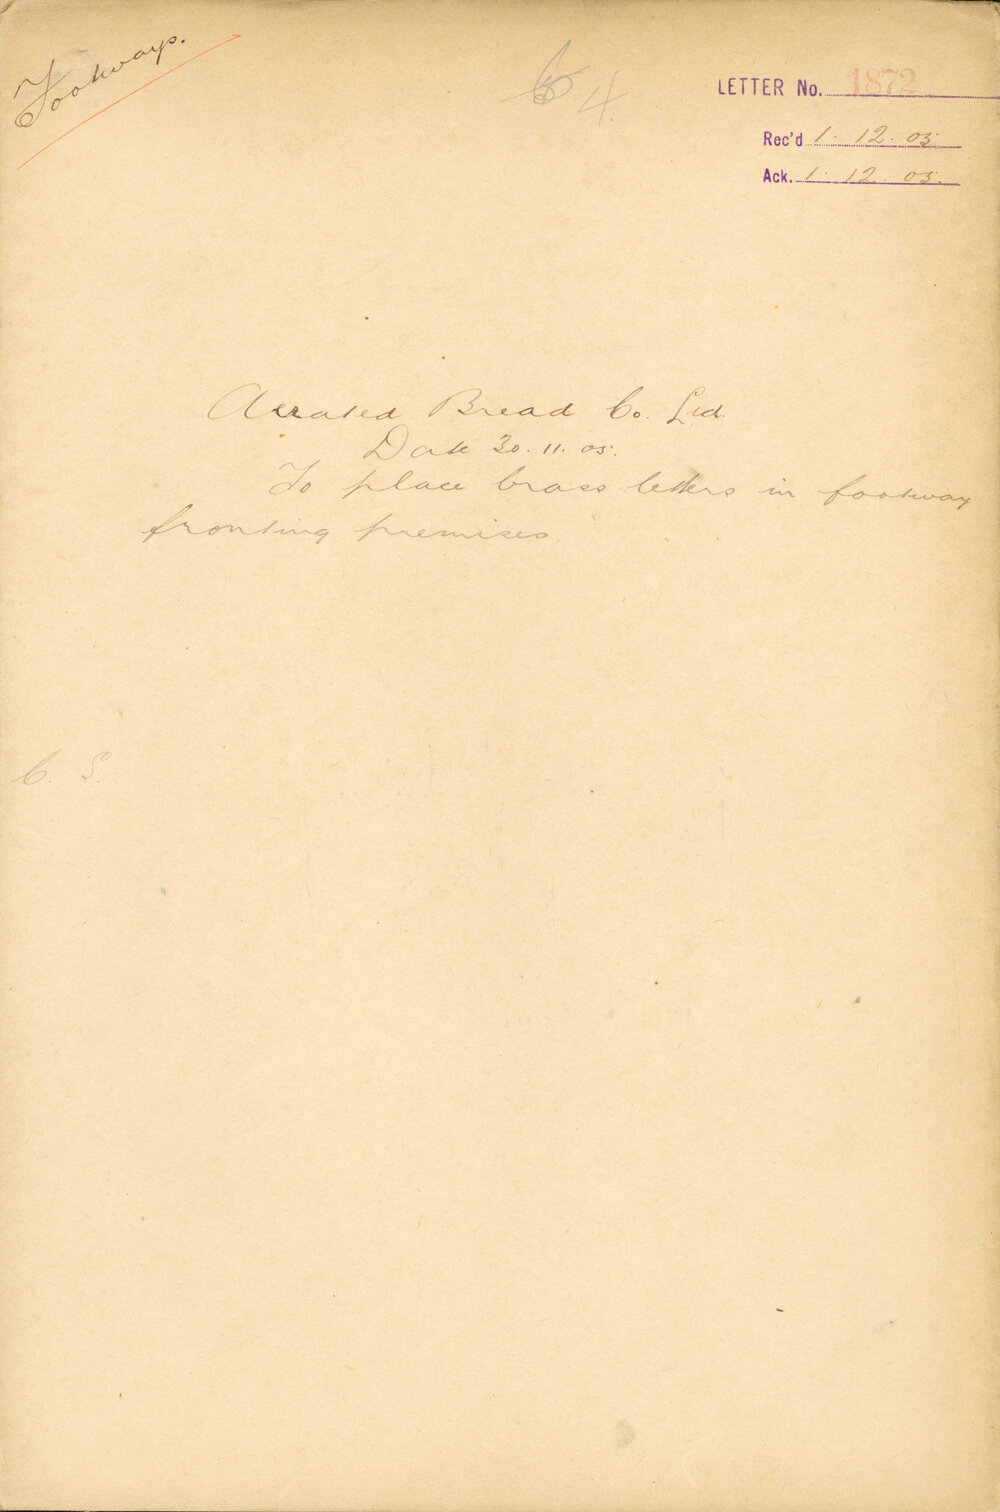 Footways.
4.
LETTER No. 1872
Rec'd 1. 12. 05.
Ack. 1. 12. 05.
Aerated Bread Co. Ltd.
Date 30. 11. 05.
To place brass letters in footway
fronting premises.
C. S.